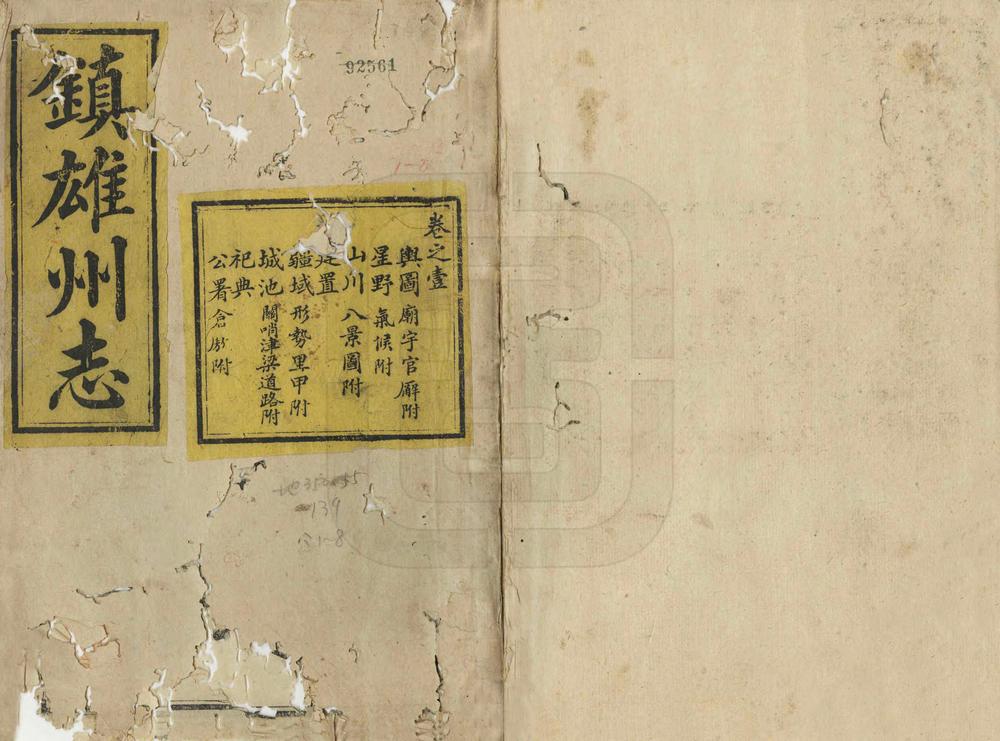 鎮雄州志
92561
卷之壹
輿圖 廟宇官廨附
星野 氣候附
山川 八景圖附
置
疆域 形勢里甲附
城池 關哨津梁道路附
祀典
公署 倉廒附
1-8
139
1-8